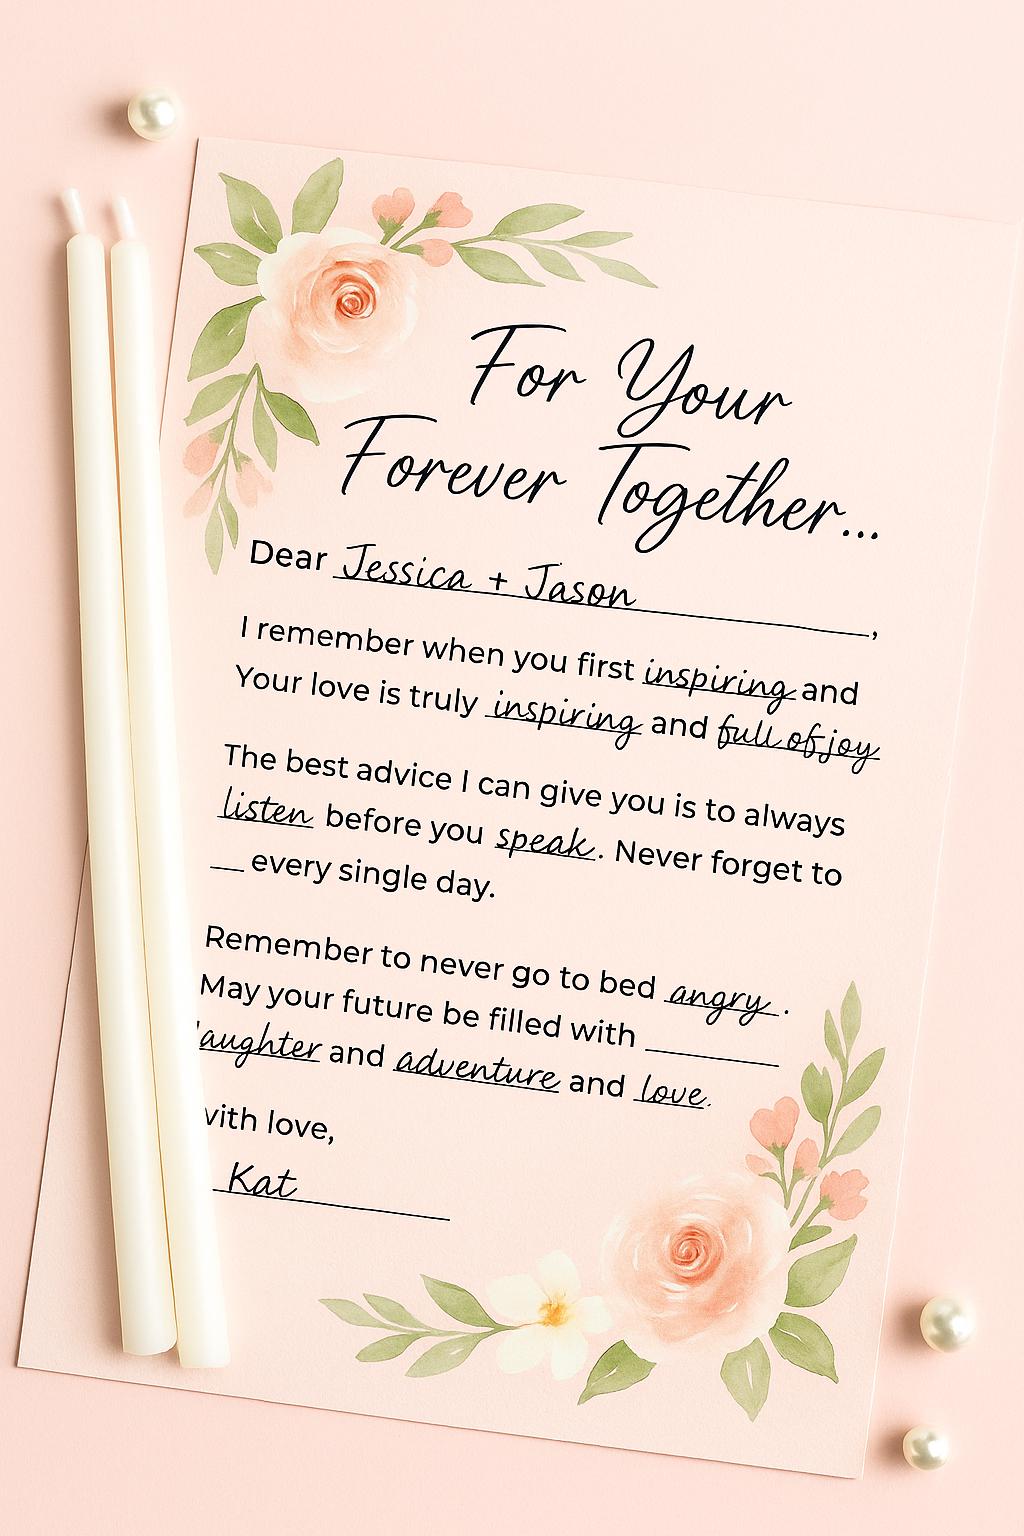 For Your
Forever Together...
Dear Jessica + Jason,
I remember when you first inspiring and
Your love is truly inspiring and full of joy
The best advice I can give you is to always
listen before you speak. Never forget to
__ every single day.
Remember to never go to bed angry.
May your future be filled with ________
laughter and adventure and love.
with love,
Kat